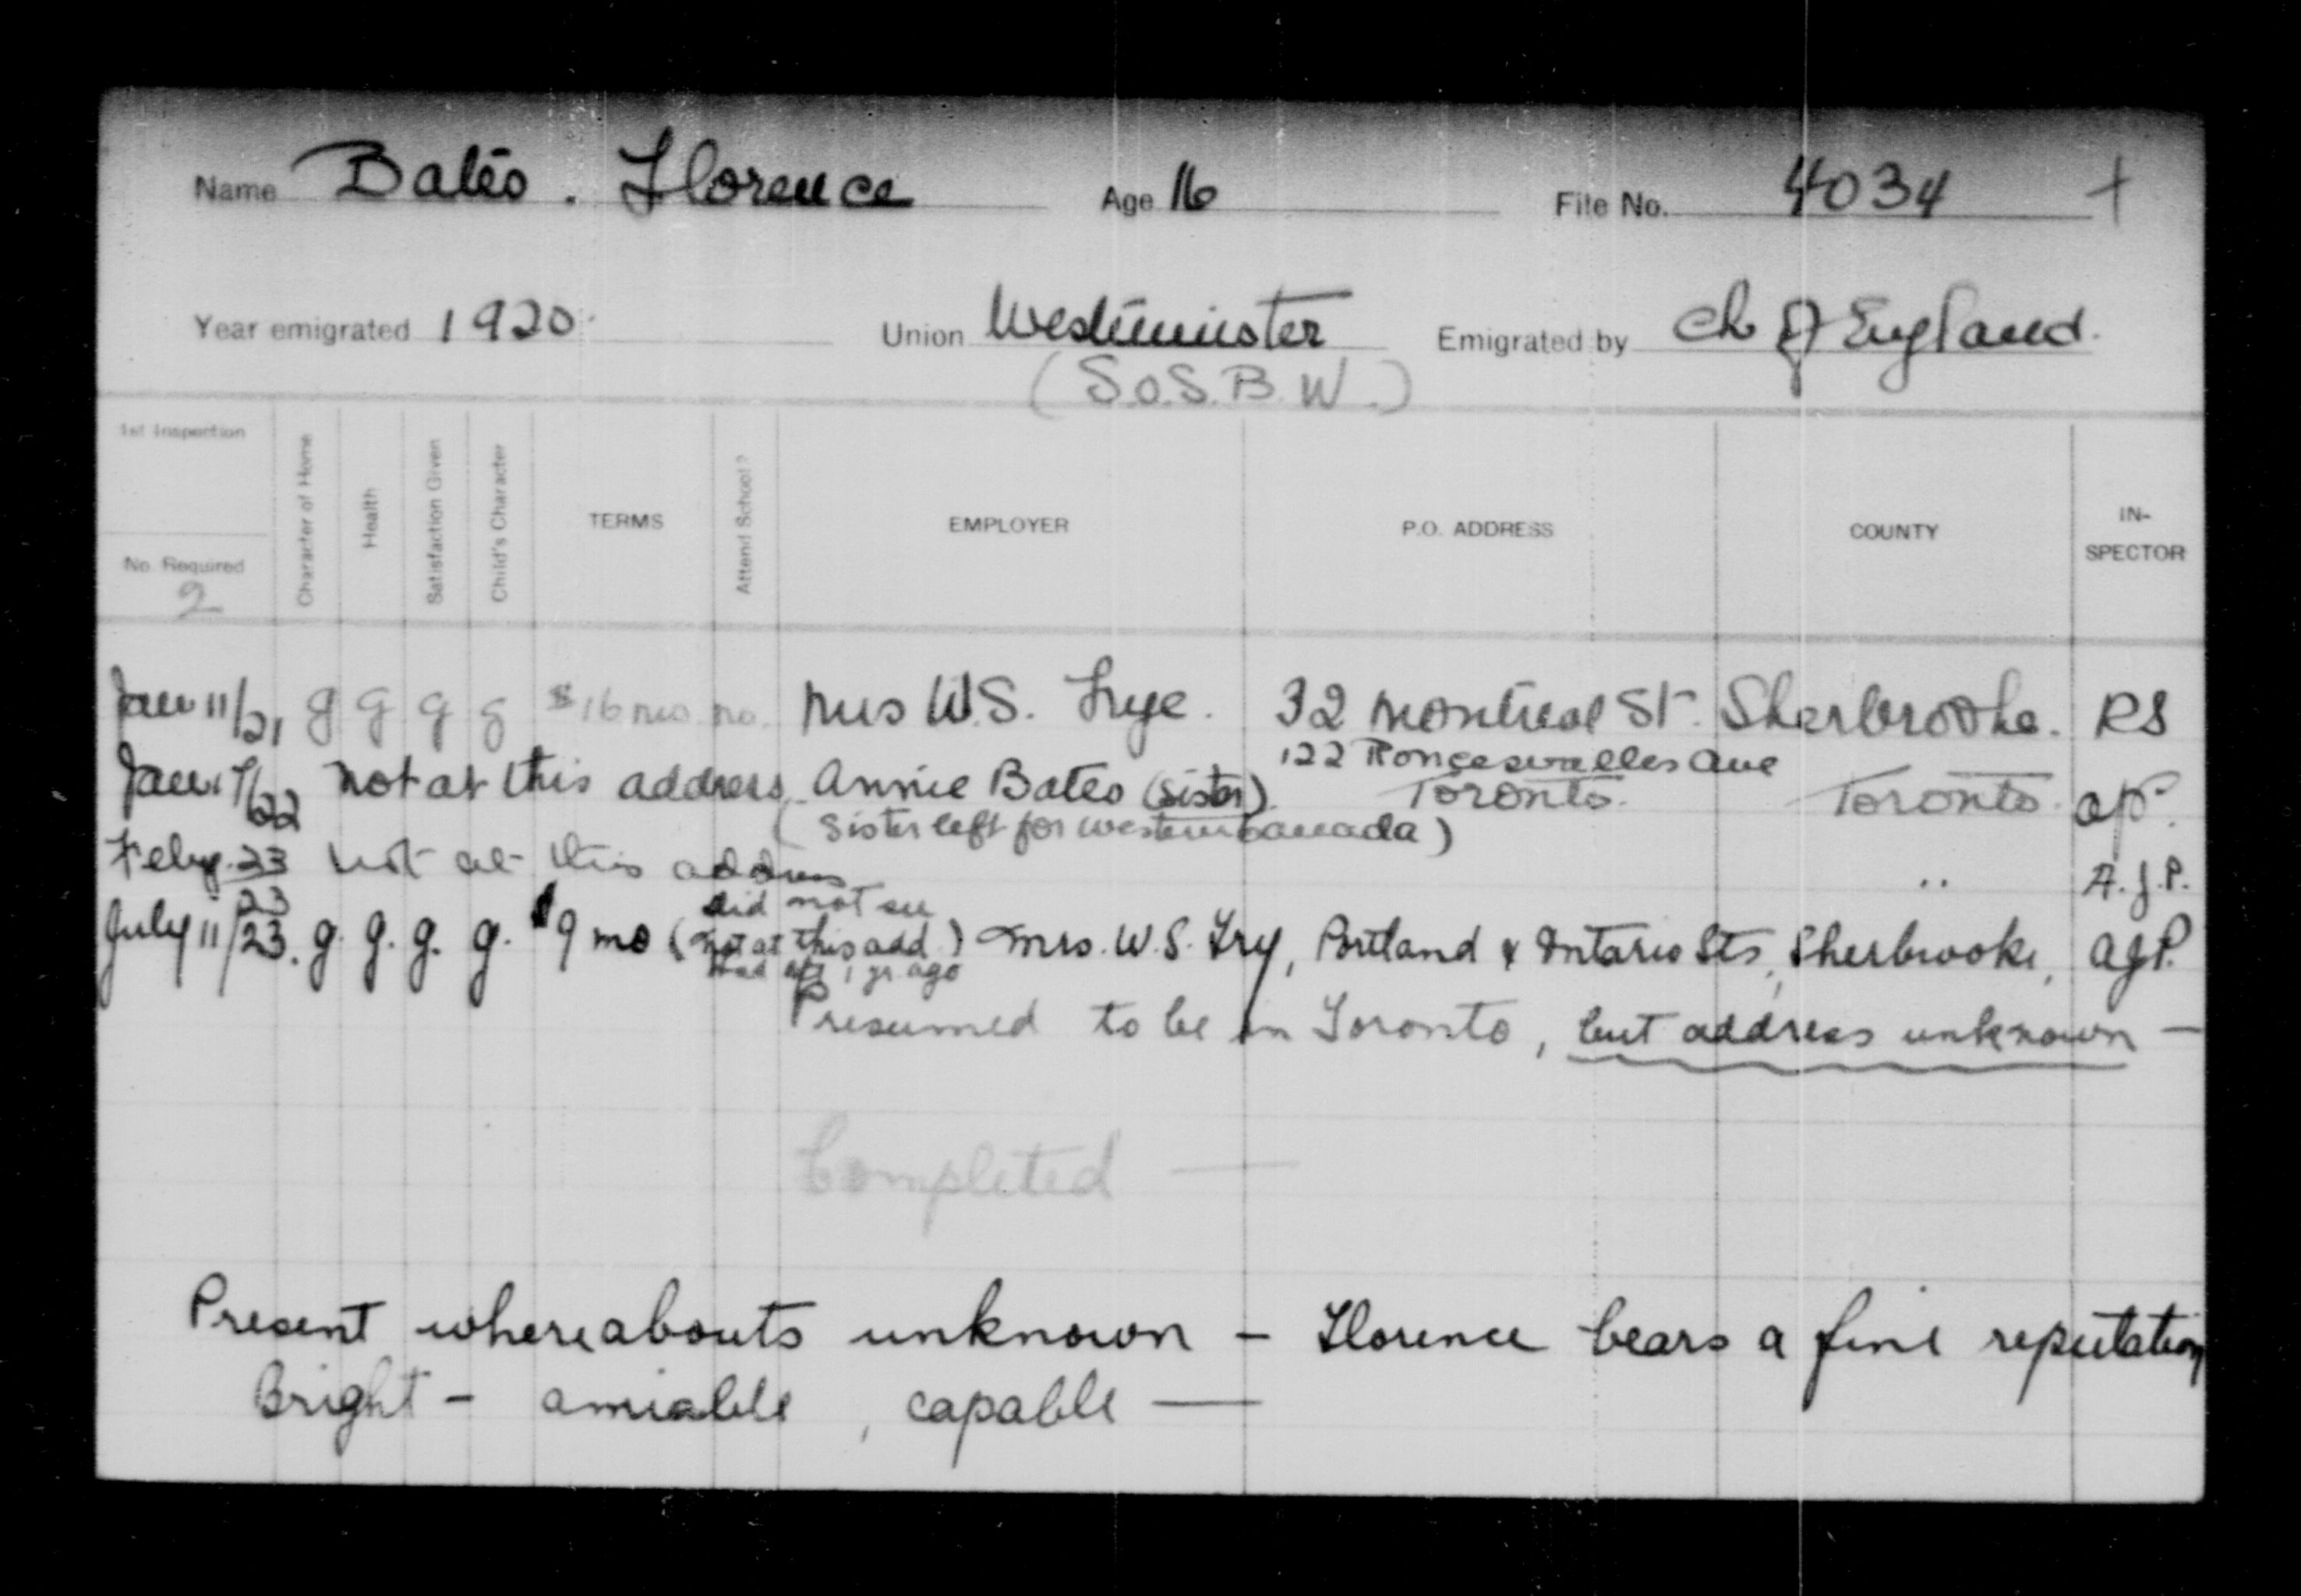 Name Bates. Florence Age 16 File No. 4034 +
Year emigrated 1920 Union Westminster Emigrated by Ch of England.
(S.O.S.B.W.)
1st Inspection
No. Required
2
Character of Home
Health
Satisfaction Given
Child's Character
TERMS
Attend School?
EMPLOYER
P.O. ADDRESS
COUNTY
IN-
SPECTOR
Jan 11/21 g g g g $16 mo no. Mrs W.S. Frye. 32 Montreal St. Sherbrooke. RS
122 Roncesvalles Ave
Jan. 17/22 not at this address. Annie Bates (sister). Toronto. Toronto.
(Sister left for western Canada)
Feby. 23 Not at this address " A.J.P.
23
did not see
July 11/23. g. g. g. g. $9 mo (not at this add.) Mrs. W.S. Fry, Portland & Ontario Sts, Sherbrooke, AJP.
1 yr ago
Presumed to be in Toronto, but address unknown —
Completed —
Present whereabouts unknown - Florence bears a fine reputation
Bright - amiable, capable —